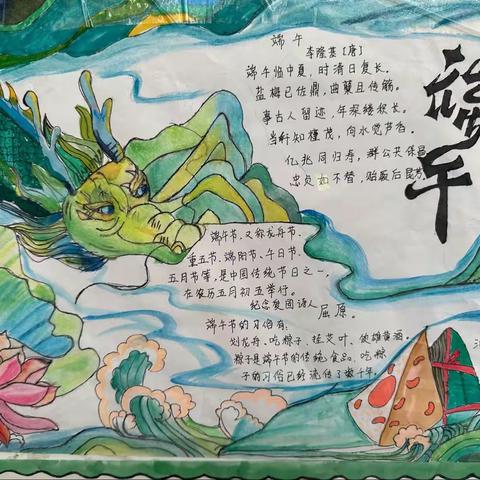 端午
李隆基[唐]
端午临中夏,时清日复长。
盐梅已佐鼎,曲糵且传觞。
事古人留迹,年深缕积长。
当轩知槿茂,向水觉芦香。
亿兆同归寿,群公共保昌
忠贞如不替,贻厥后昆芳。
端午
端午节,又称龙舟节、
重五节、端阳节、午日节、
五月节等,是中国传统节日之一,
在农历五月初五举行。
纪念爱国诗人屈原。
端午节的习俗有:
划龙舟、吃粽子、挂艾叶、饮雄黄酒。
粽子是端午节的传统食品,吃粽
子的习俗已经流传了数千年。